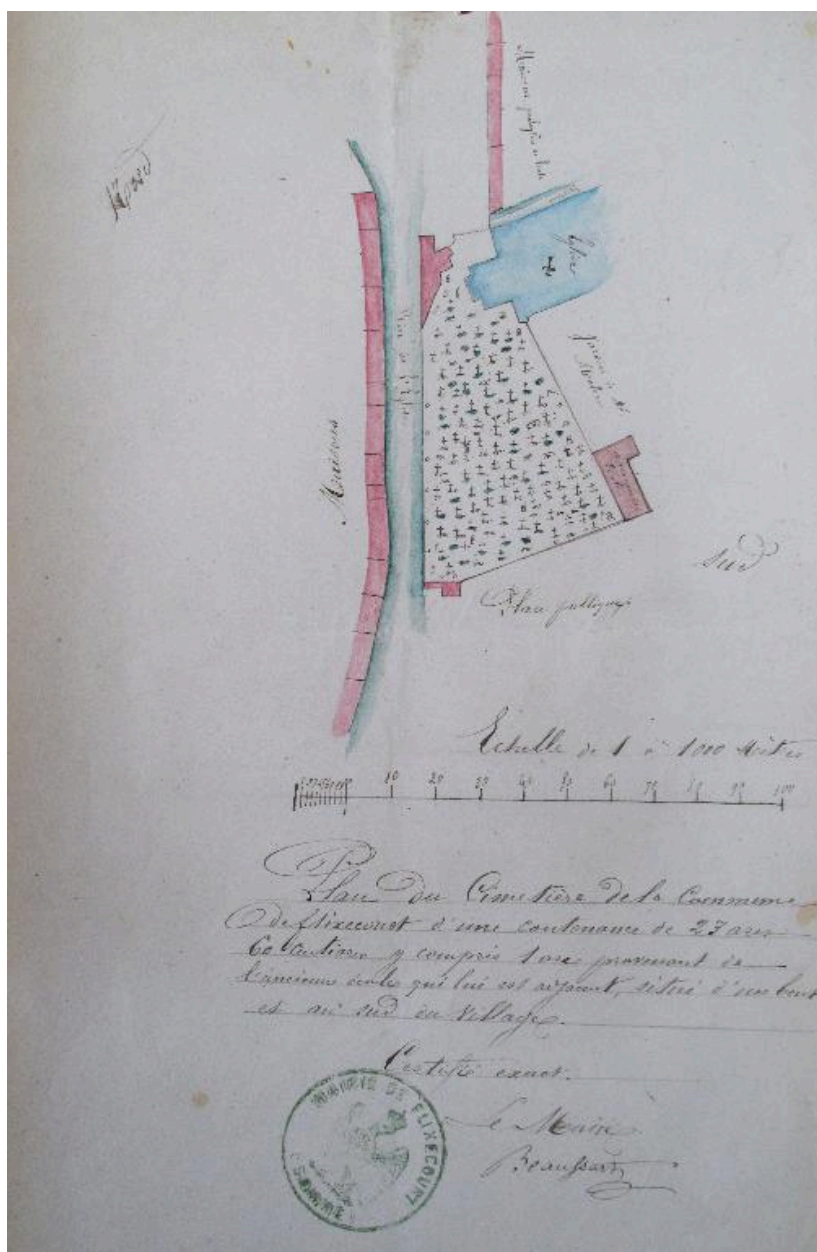 Nord
Maisons
Rue de l'Eglise
Eglise
Jardin à Mr
sud
Place publique
Echelle de 1 à 1000 Mètres
10 20 30 40 50 60 70 80 90 100
Plan du Cimetière de la Commune
de flixecourt d'une contenance de 27 ares
60 Centiares y compris 1 are provenant de
l'ancienne école qui lui est adjacent, situé d'un bout
et au sud du village.
Certifié exact.
Le Maire
Beaussart
MAIRIE DE FLIXECOURT
(SOMME)